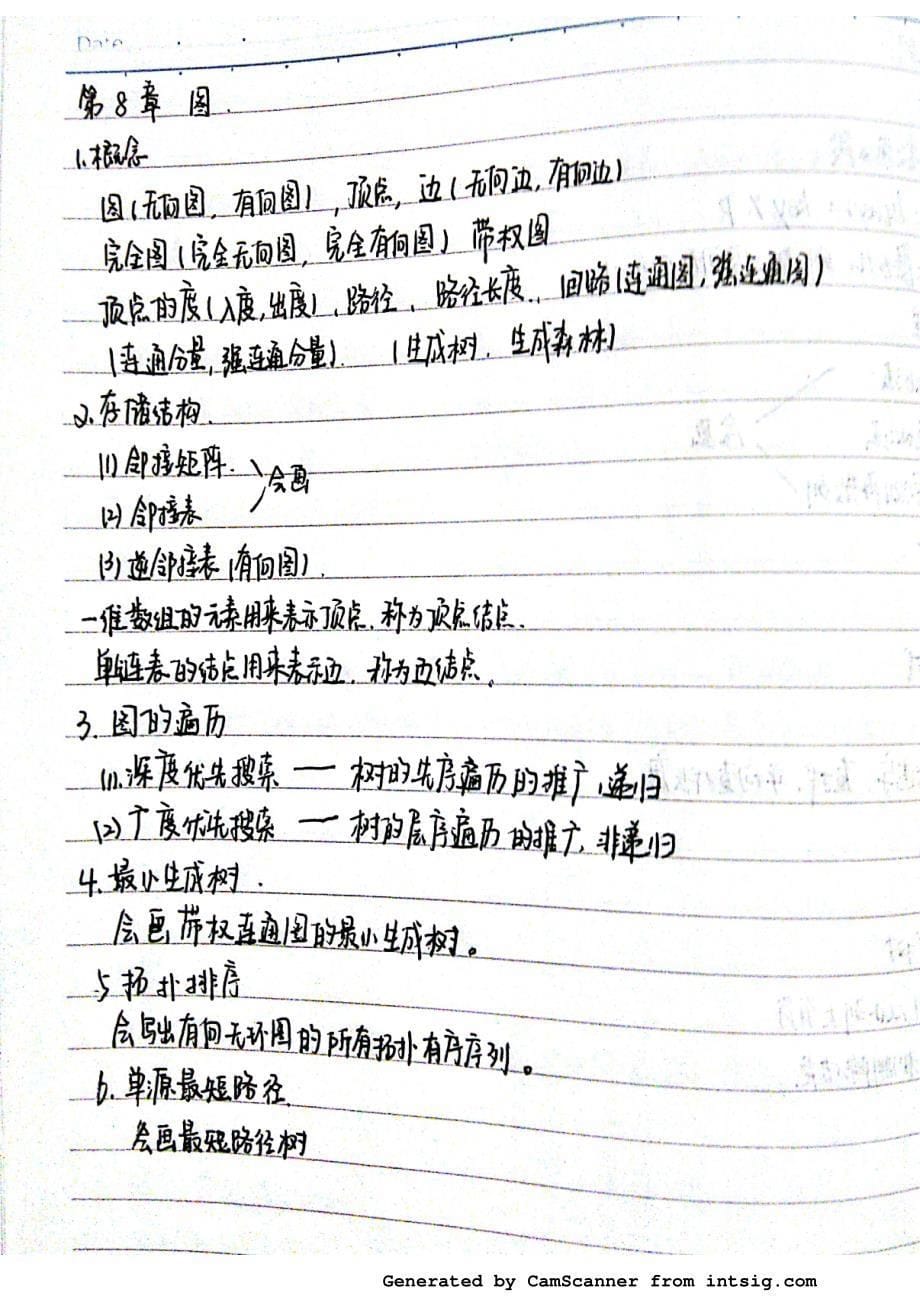 Date
第8章 图.
1.概念
图(无向图,有向图),顶点,边(无向边,有向边)
完全图(完全无向图,完全有向图) 带权图
顶点的度(入度,出度)、路径、路径长度、回路(连通图,强连通图)
(连通分量,强连通分量). (生成树、生成森林)
2.存储结构.
(1)邻接矩阵.
会画
(2)邻接表
(3)逆邻接表(有向图).
一维数组的元素用来表示顶点.称为顶点结点.
单链表的结点用来表示边.称为边结点。
3.图的遍历
(1).深度优先搜索 — 树的先序遍历的推广,递归
(2)广度优先搜索 — 树的层序遍历的推广,非递归
4.最小生成树.
会画带权连通图的最小生成树。
5拓扑排序
会写出有向无环图的所有拓扑有序序列。
6.单源最短路径.
会画最短路径树
Generated by CamScanner from intsig.com